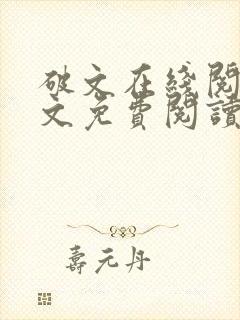 破文在綫閱
文免費閱讀
壽元丹